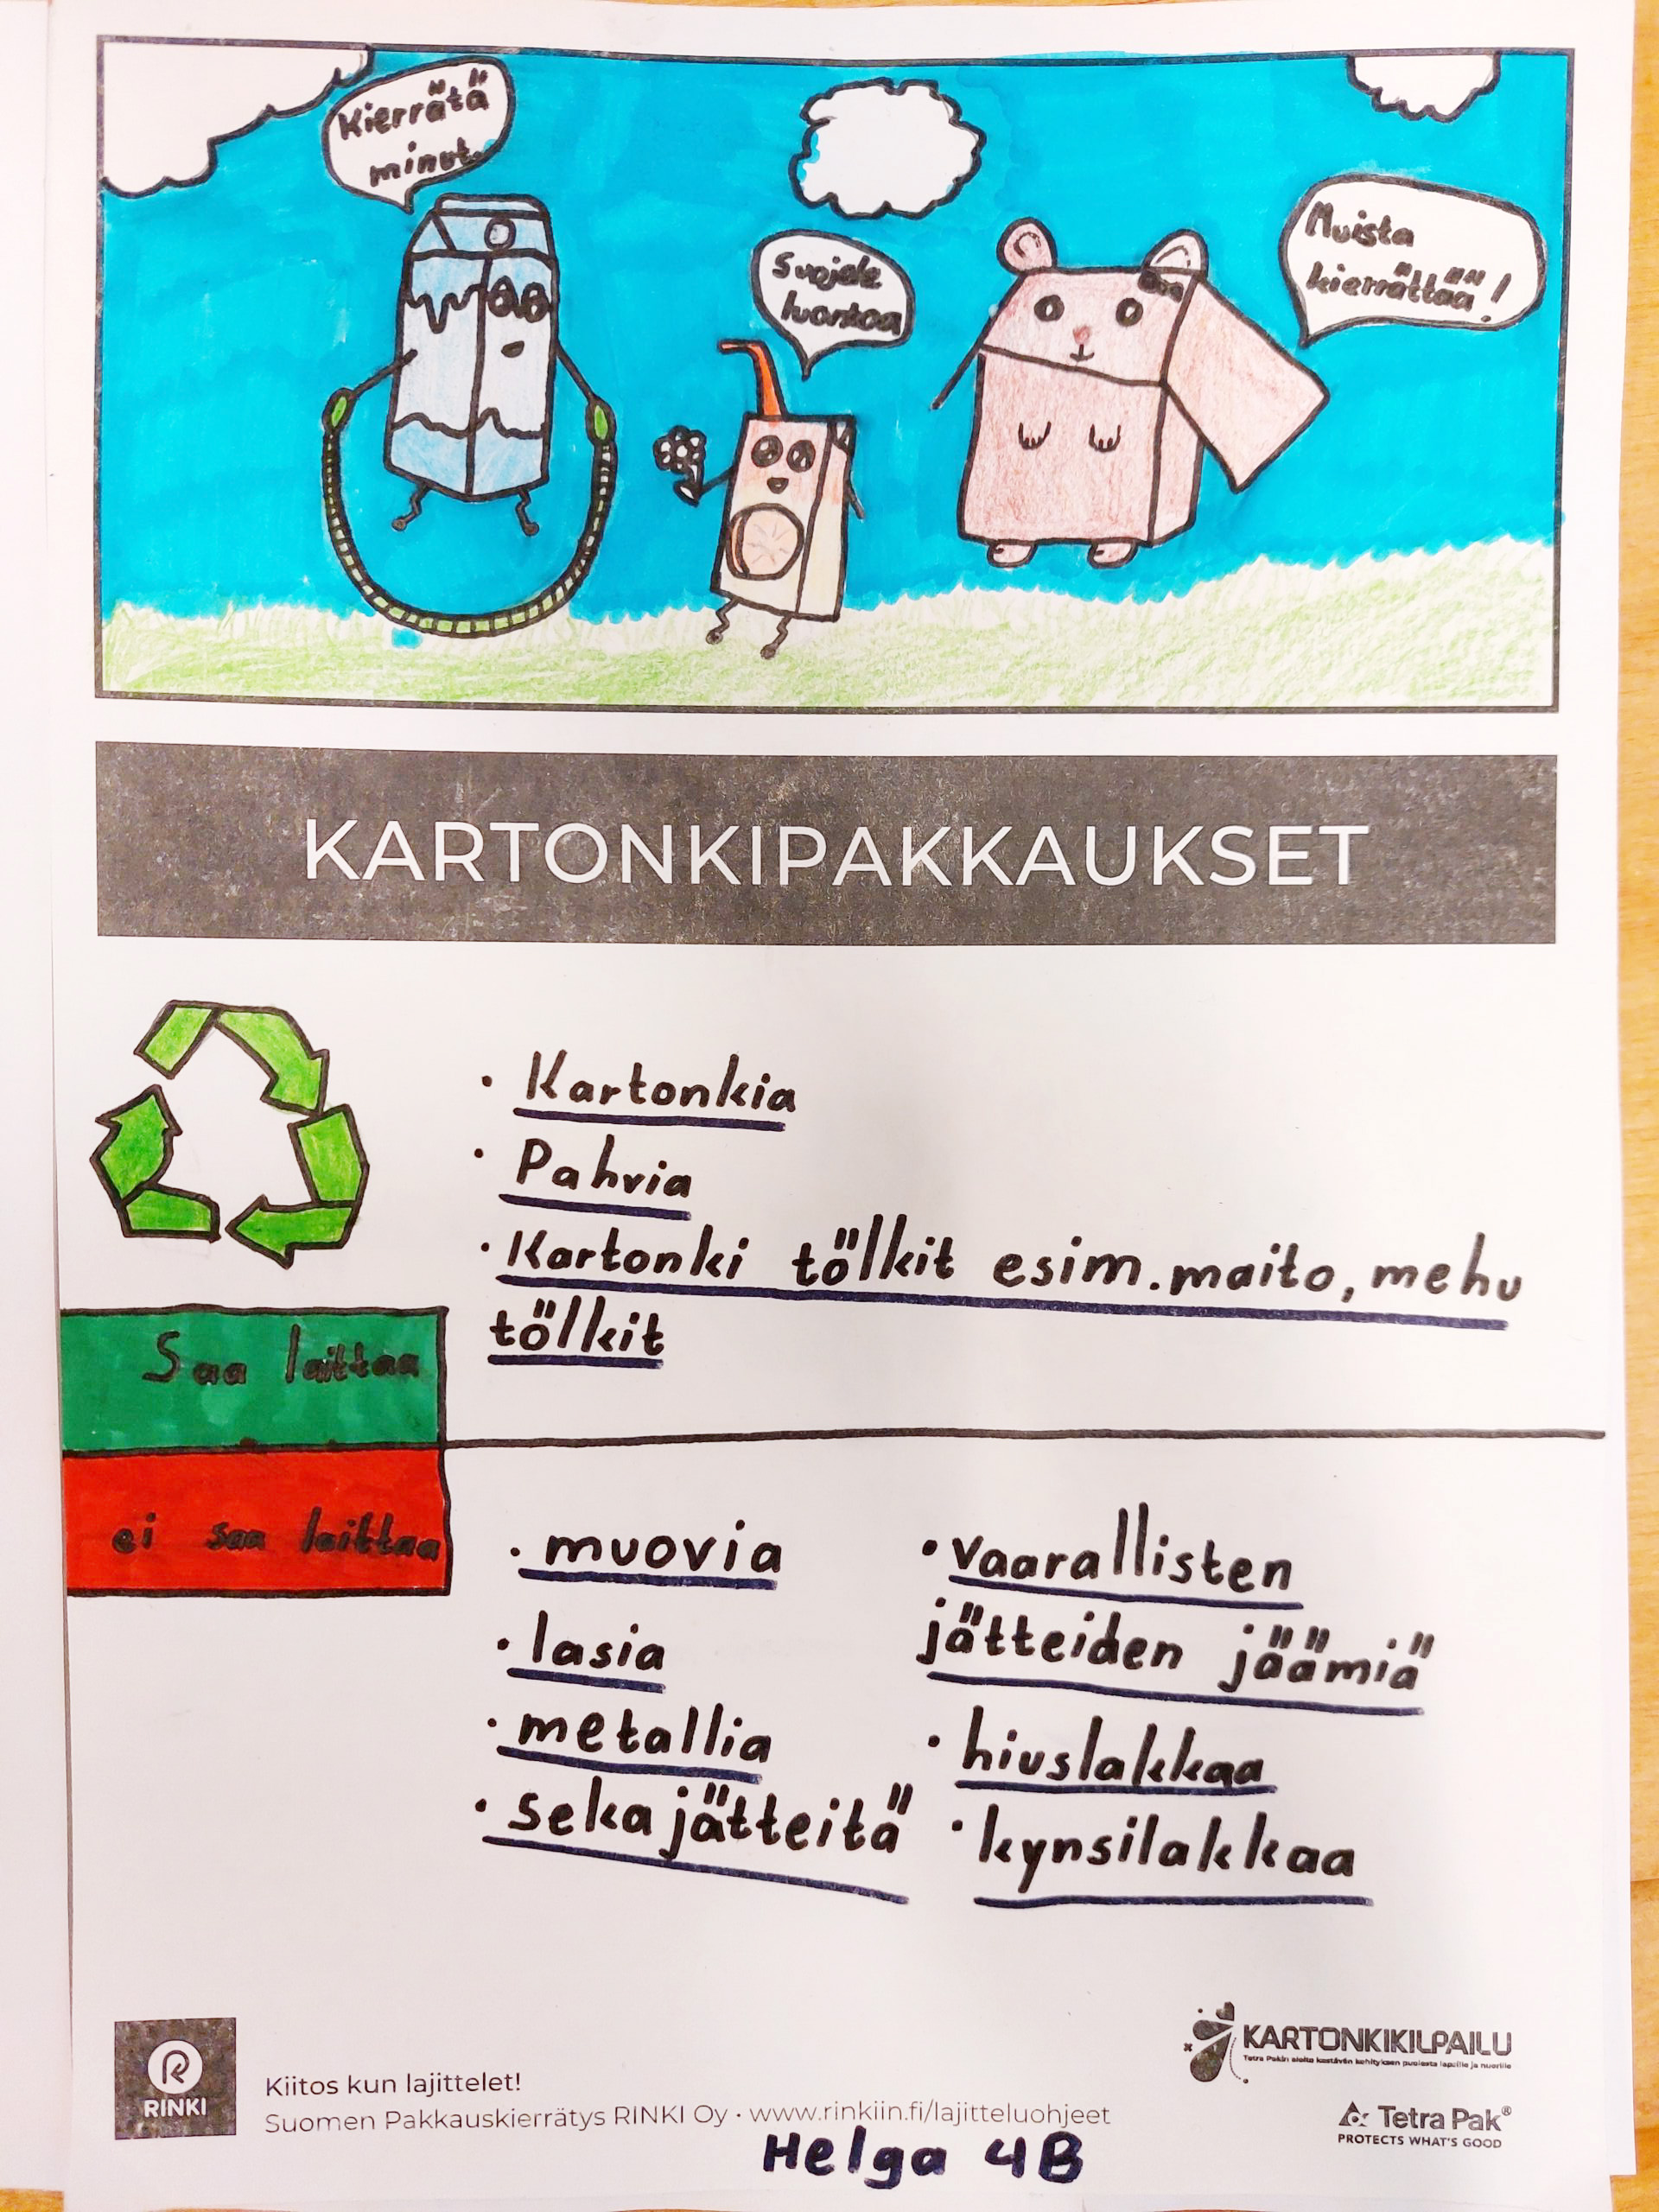 Kierrätä
minut.
Suojele
luontoa
Muista
kierrättää!
KARTONKIPAKKAUKSET
• Kartonkia
• Pahvia
• Kartonki tölkit esim. maito, mehu
tölkit
Saa laittaa
ei saa laittaa
• muovia
• lasia
• metallia
• sekajätteitä
• vaarallisten
jätteiden jäämiä
• hiuslakkaa
• kynsilakkaa
RINKI
Kiitos kun lajittelet!
Suomen Pakkauskierrätys RINKI Oy • www.rinkiin.fi/lajitteluohjeet
Helga 4B
KARTONKIKILPAILU
Tetra Pakin aloite kestävän kehityksen puolesta lapsille ja nuorille
Tetra Pak®
PROTECTS WHAT'S GOOD